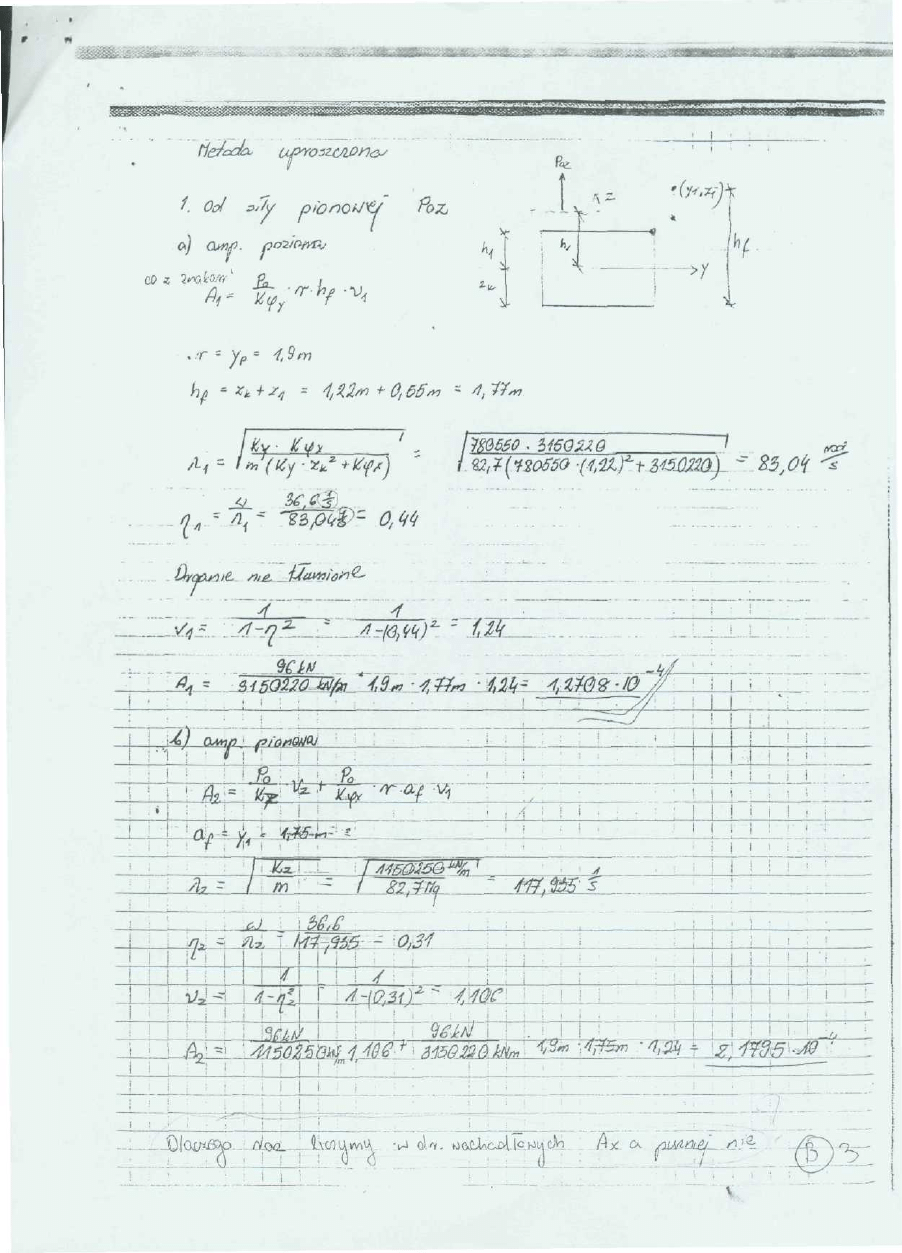 Metoda uproszczona
1. Od siły pionowej Poz
a) amp. pozioma
co z znakami
A₁ = P₀/Kφy · r · hf · ν₁
Poz
z
(y₁,z₁)
h₁
zk
hf
y
r = yp = 1,9m
hf = zk + z₁ = 1,22m + 0,55m = 1,77m
λ₁ = √(Ky · Kφx / m(Ky · zk² + Kφx)) = √(780550 · 3150220 / 82,7(780550 · (1,22)² + 3150220)) = 83,04 rad/s
η₁ = ω/λ₁ = 36,6 1/s / 83,04 1/s = 0,44
Drganie nie tłumione
ν₁ = 1/(1-η²) = 1/(1-(0,44)²) = 1,24
A₁ = 96kN / 3150220 kN/m · 1,9m · 1,77m · 1,24 = 1,2708 · 10⁻⁴
b) amp. pionowa
A₂ = P₀/Kz · ν₂ + P₀/Kφx · r · af · ν₁
af = y₁ = 1,75 m =
λ₂ = √(Kz / m) = √(1150250 kN/m / 82,7 Mg) = 117,935 1/s
η₂ = ω/λ₂ = 36,6/117,935 = 0,31
ν₂ = 1/(1-η₂²) = 1/(1-(0,31)²) = 1,106
A₂ = 96kN / 1150250 kN/m · 1,106 + 96kN / 3150220 kNm · 1,9m · 1,75m · 1,24 = 2,1795 · 10⁻⁴
Dlaczego raz liczymy w dr. wachadłowych Ax a później nie
B 3